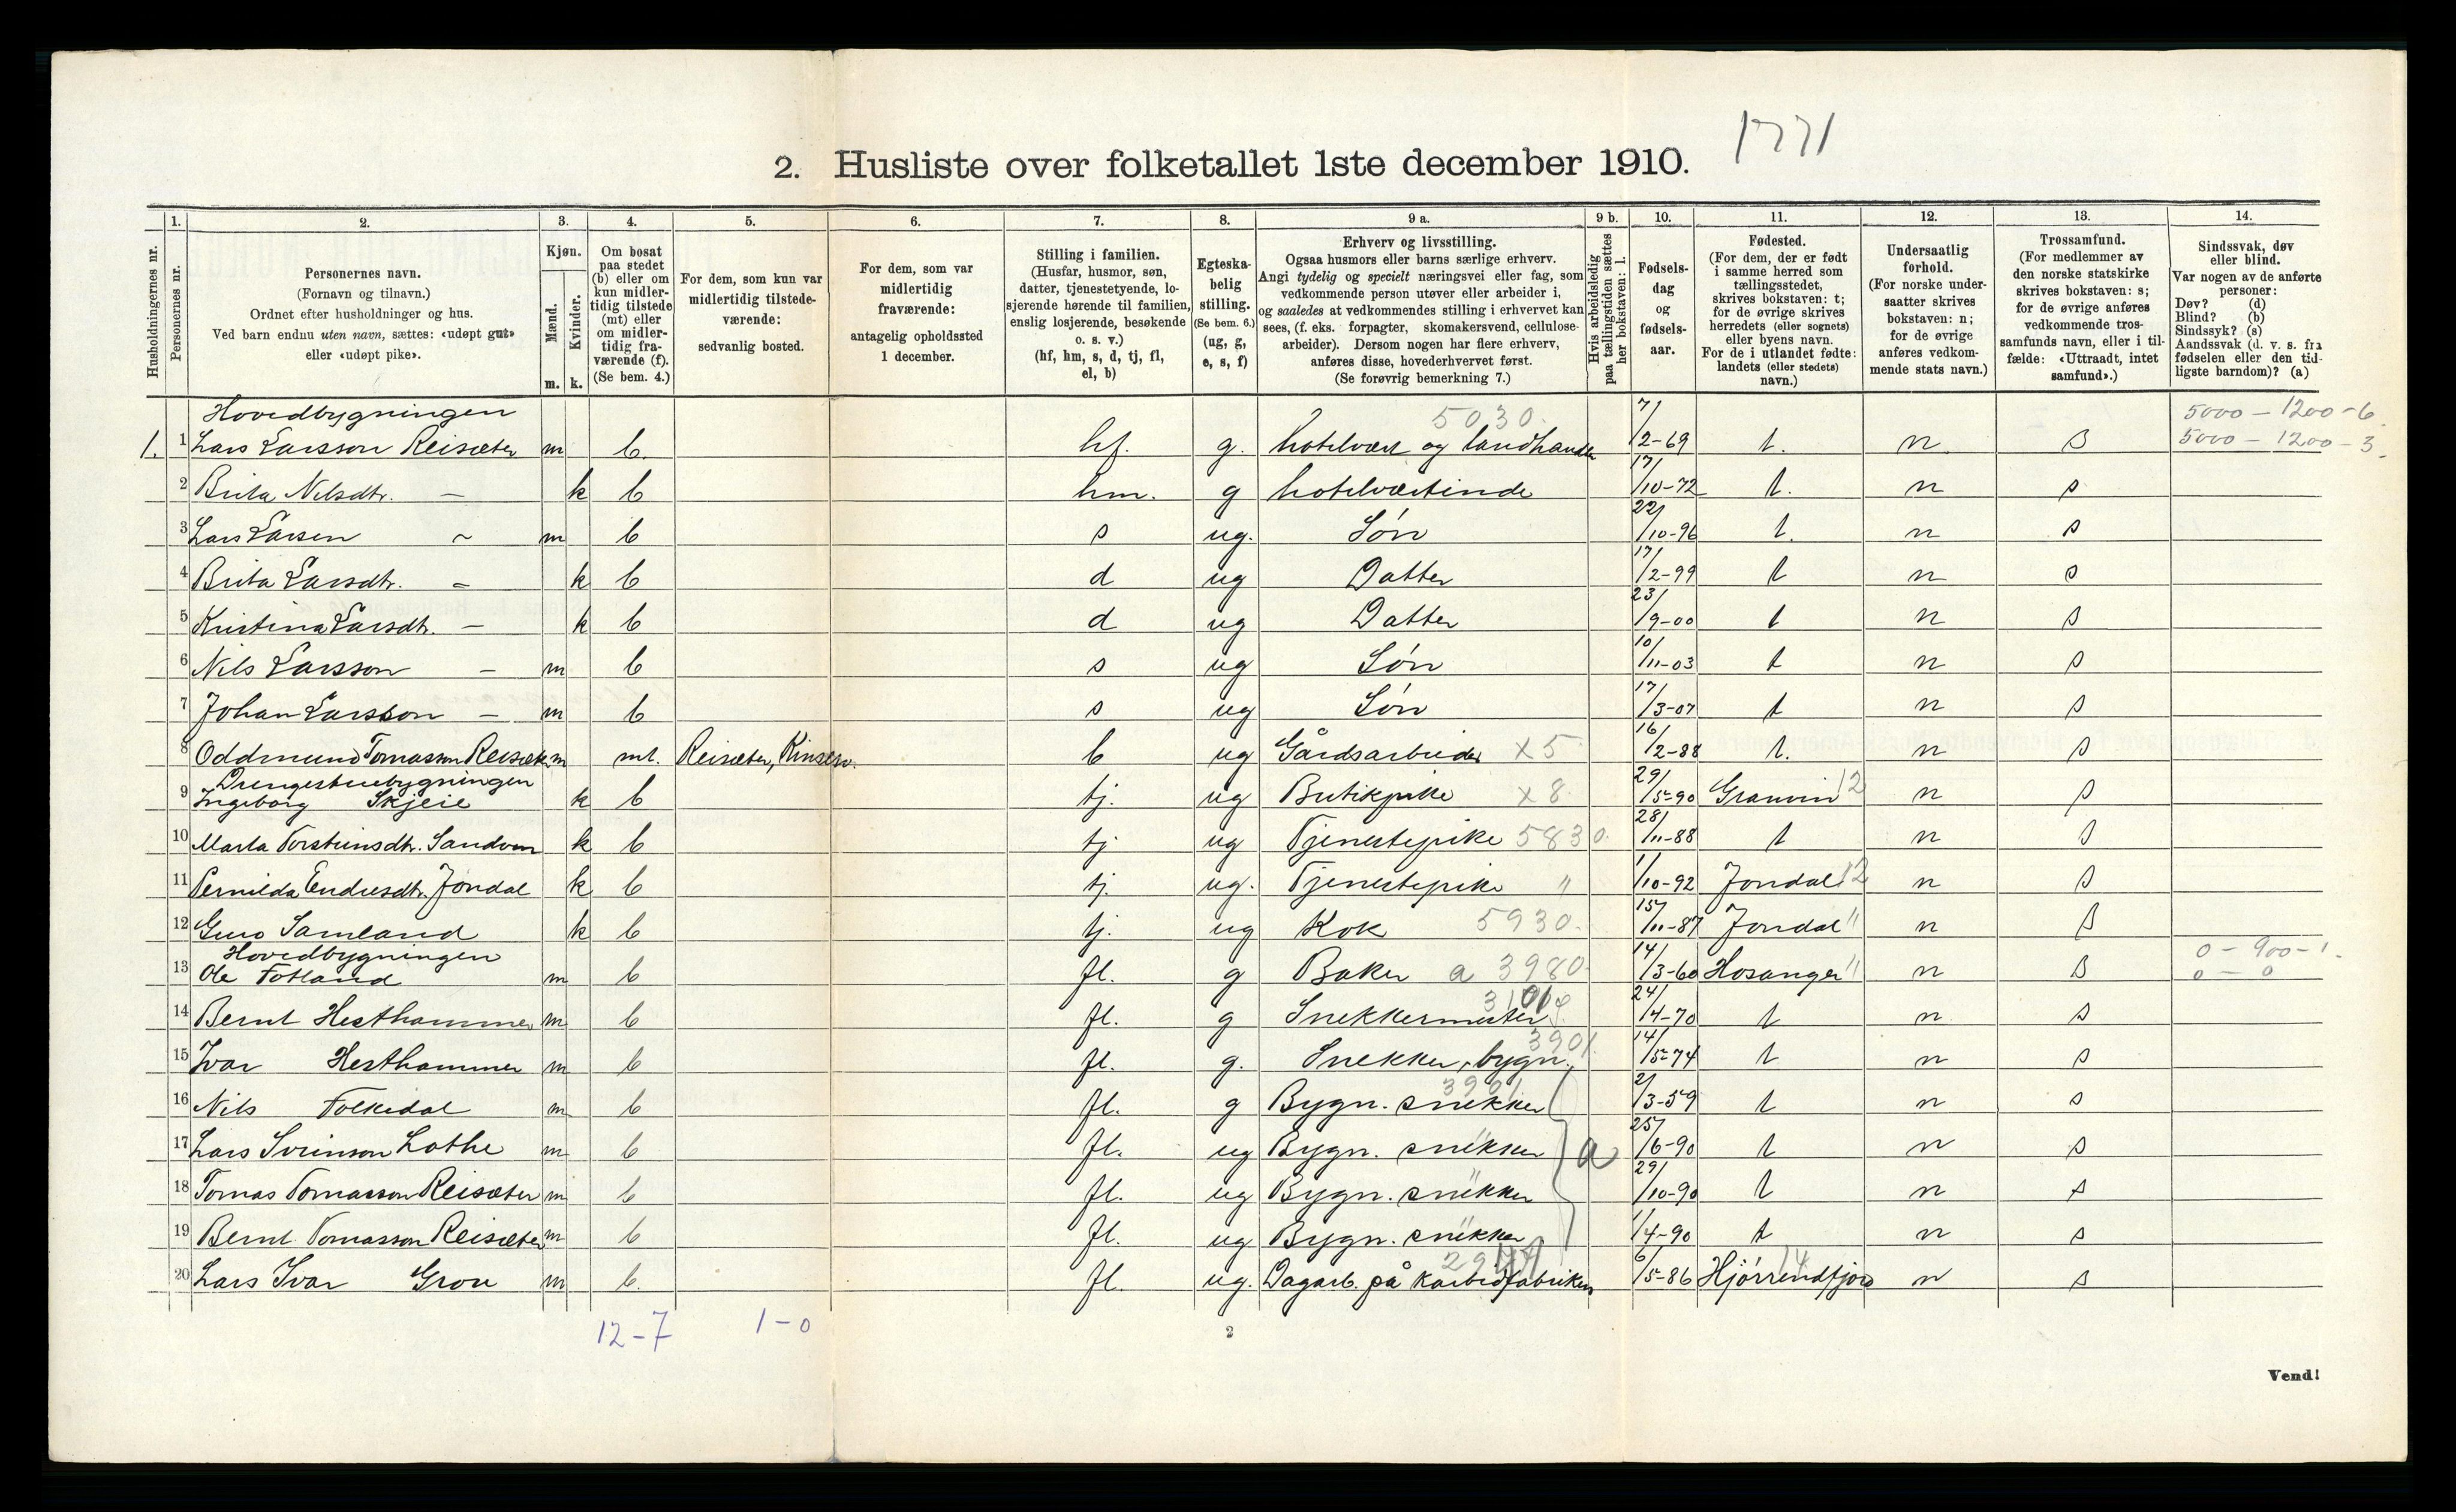 1771
2. Husliste over folketallet 1ste december 1910.
Husholdningernes nr.
1.
Personernes nr.
2.
Personernes navn.
(Fornavn og tilnavn.)
Ordnet efter husholdninger og hus.
Ved barn endnu uten navn, sættes: «udøpt gut»
eller «udøpt pike».
3.
Kjøn.
Mænd.
Kvinder.
m. k.
4.
Om bosat
paa stedet
(b) eller om
kun midler-
tidig tilstede
(mt) eller
om midler-
tidig fra-
værende (f).
(Se bem. 4.)
5.
For dem, som kun var
midlertidig tilstede-
værende:
sedvanlig bosted.
6.
For dem, som var
midlertidig
fraværende:
antagelig opholdssted
1 december.
7.
Stilling i familien.
(Husfar, husmor, søn,
datter, tjenestetyende, lo-
sjerende hørende til familien,
enslig losjerende, besøkende
o. s. v.)
(hf, hm, s, d, tj, fl,
el, b)
8.
Egteska-
belig
stilling.
(Se bem. 6.)
(ug, g,
e, s, f)
9 a.
Erhverv og livsstilling.
Ogsaa husmors eller barns særlige erhverv.
Angi tydelig og specielt næringsvei eller fag, som
vedkommende person utøver eller arbeider i,
og saaledes at vedkommendes stilling i erhvervet kan
sees, (f. eks. forpagter, skomakersvend, cellulose-
arbeider). Dersom nogen har flere erhverv,
anføres disse, hovederhvervet først.
(Se forøvrig bemerkning 7.)
9 b.
Hvis arbeidsledig
paa tællingstiden sættes
her bokstaven: l.
10.
Fødsels-
dag
og
fødsels-
aar.
11.
Fødested.
(For dem, der er født
i samme herred som
tællingsstedet,
skrives bokstaven: t;
for de øvrige skrives
herredets (eller sognets)
eller byens navn.
For de i utlandet fødte:
landets (eller stedets)
navn.)
12.
Undersaatlig
forhold.
(For norske under-
saatter skrives
bokstaven: n;
for de øvrige
anføres vedkom-
mende stats navn.)
13.
Trossamfund.
(For medlemmer av
den norske statskirke
skrives bokstaven: s;
for de øvrige anføres
vedkommende tros-
samfunds navn, eller i til-
fælde: «Uttraadt, intet
samfund».)
14.
Sindssvak, døv
eller blind.
Var nogen av de anførte
personer:
Døv? (d)
Blind? (b)
Sindssyk? (s)
Aandssvak (d. v. s. fra
fødselen eller den tid-
ligste barndom)? (a)
Hovedbygningen 5030. 5000 - 1200 - 6
1. 1 Lars Larsson Reisæter m b. hf. g. hotelvært og landhandler 7/2-69 t. n. s 5000 - 1200 - 3
2 Brita Nilsdtr. — k b hm. g hotelværtinde 17/10-72 t. n s
3 Lars Larsen ~ m b s ug. Søn 22/10-96 t. n s
4 Brita Larsdtr. - k b d ug Datter 17/2-99 t n s
5 Kristina Larsdtr. — k b d ug Datter 23/9-00 t n s
6 Nils Larsson — m b s ug Søn 10/11-03 t n s
7 Johan Larsson — m b s ug Søn 17/3-07 t n s
8 Oddmund Tomasson Reisæter m mt. Reisæter, Kinserv. b ug Gårdsarbeider x5 16/2-88 t. n s
Drengestuebygningen
9 Ingeborg Skjeie k b tj. ug Butikpike x8 29/5-90 Granvin 12 n s
10 Marta Torsteinsdtr. Sandven k b tj ug Tjenestepike 5830. 28/11-88 t n s
11 Pernilda Endresdtr. Jondal k b tj. ug. Tjenestepike " 1/10-92 Jondal 12 n s
12 Guro Samland k b tj. ug Kok 5930. 15/11-87 Jondal " n s
Hovedbygningen 0 - 900 - 1.
13 Ole Fotland m b fl. g Baker a 3980. 14/3-60 Hosanger " n s 0 - 0
14 Bernt Hesthammer m b fl. g Snekkermester 24/4-70 t n s
3901
15 Ivar Hesthammer m b fl. g. Snekker, bygn. 14/5-74 t n s
3901
16 Nils Folkedal m b fl. g Bygn. snekker 2/3-59 t n s
17 Lars Sveinson Lothe m b fl. ug Bygn. snekker " a 25/6-90 t n s
18 Tomas Tomasson Reisæter m b fl. ug Bygn. snekker " 29/10-90 t n s
19 Bernt Tomasson Reisæter m b fl. ug Bygn. snekker " 1/4-90 t n s
20 Lars Ivar Grou m b. fl. ug. Dagarb. på karbidfabriken 6/5-86 Hjørrendfjord 14 n s
12-7 1-0
2
Vend!